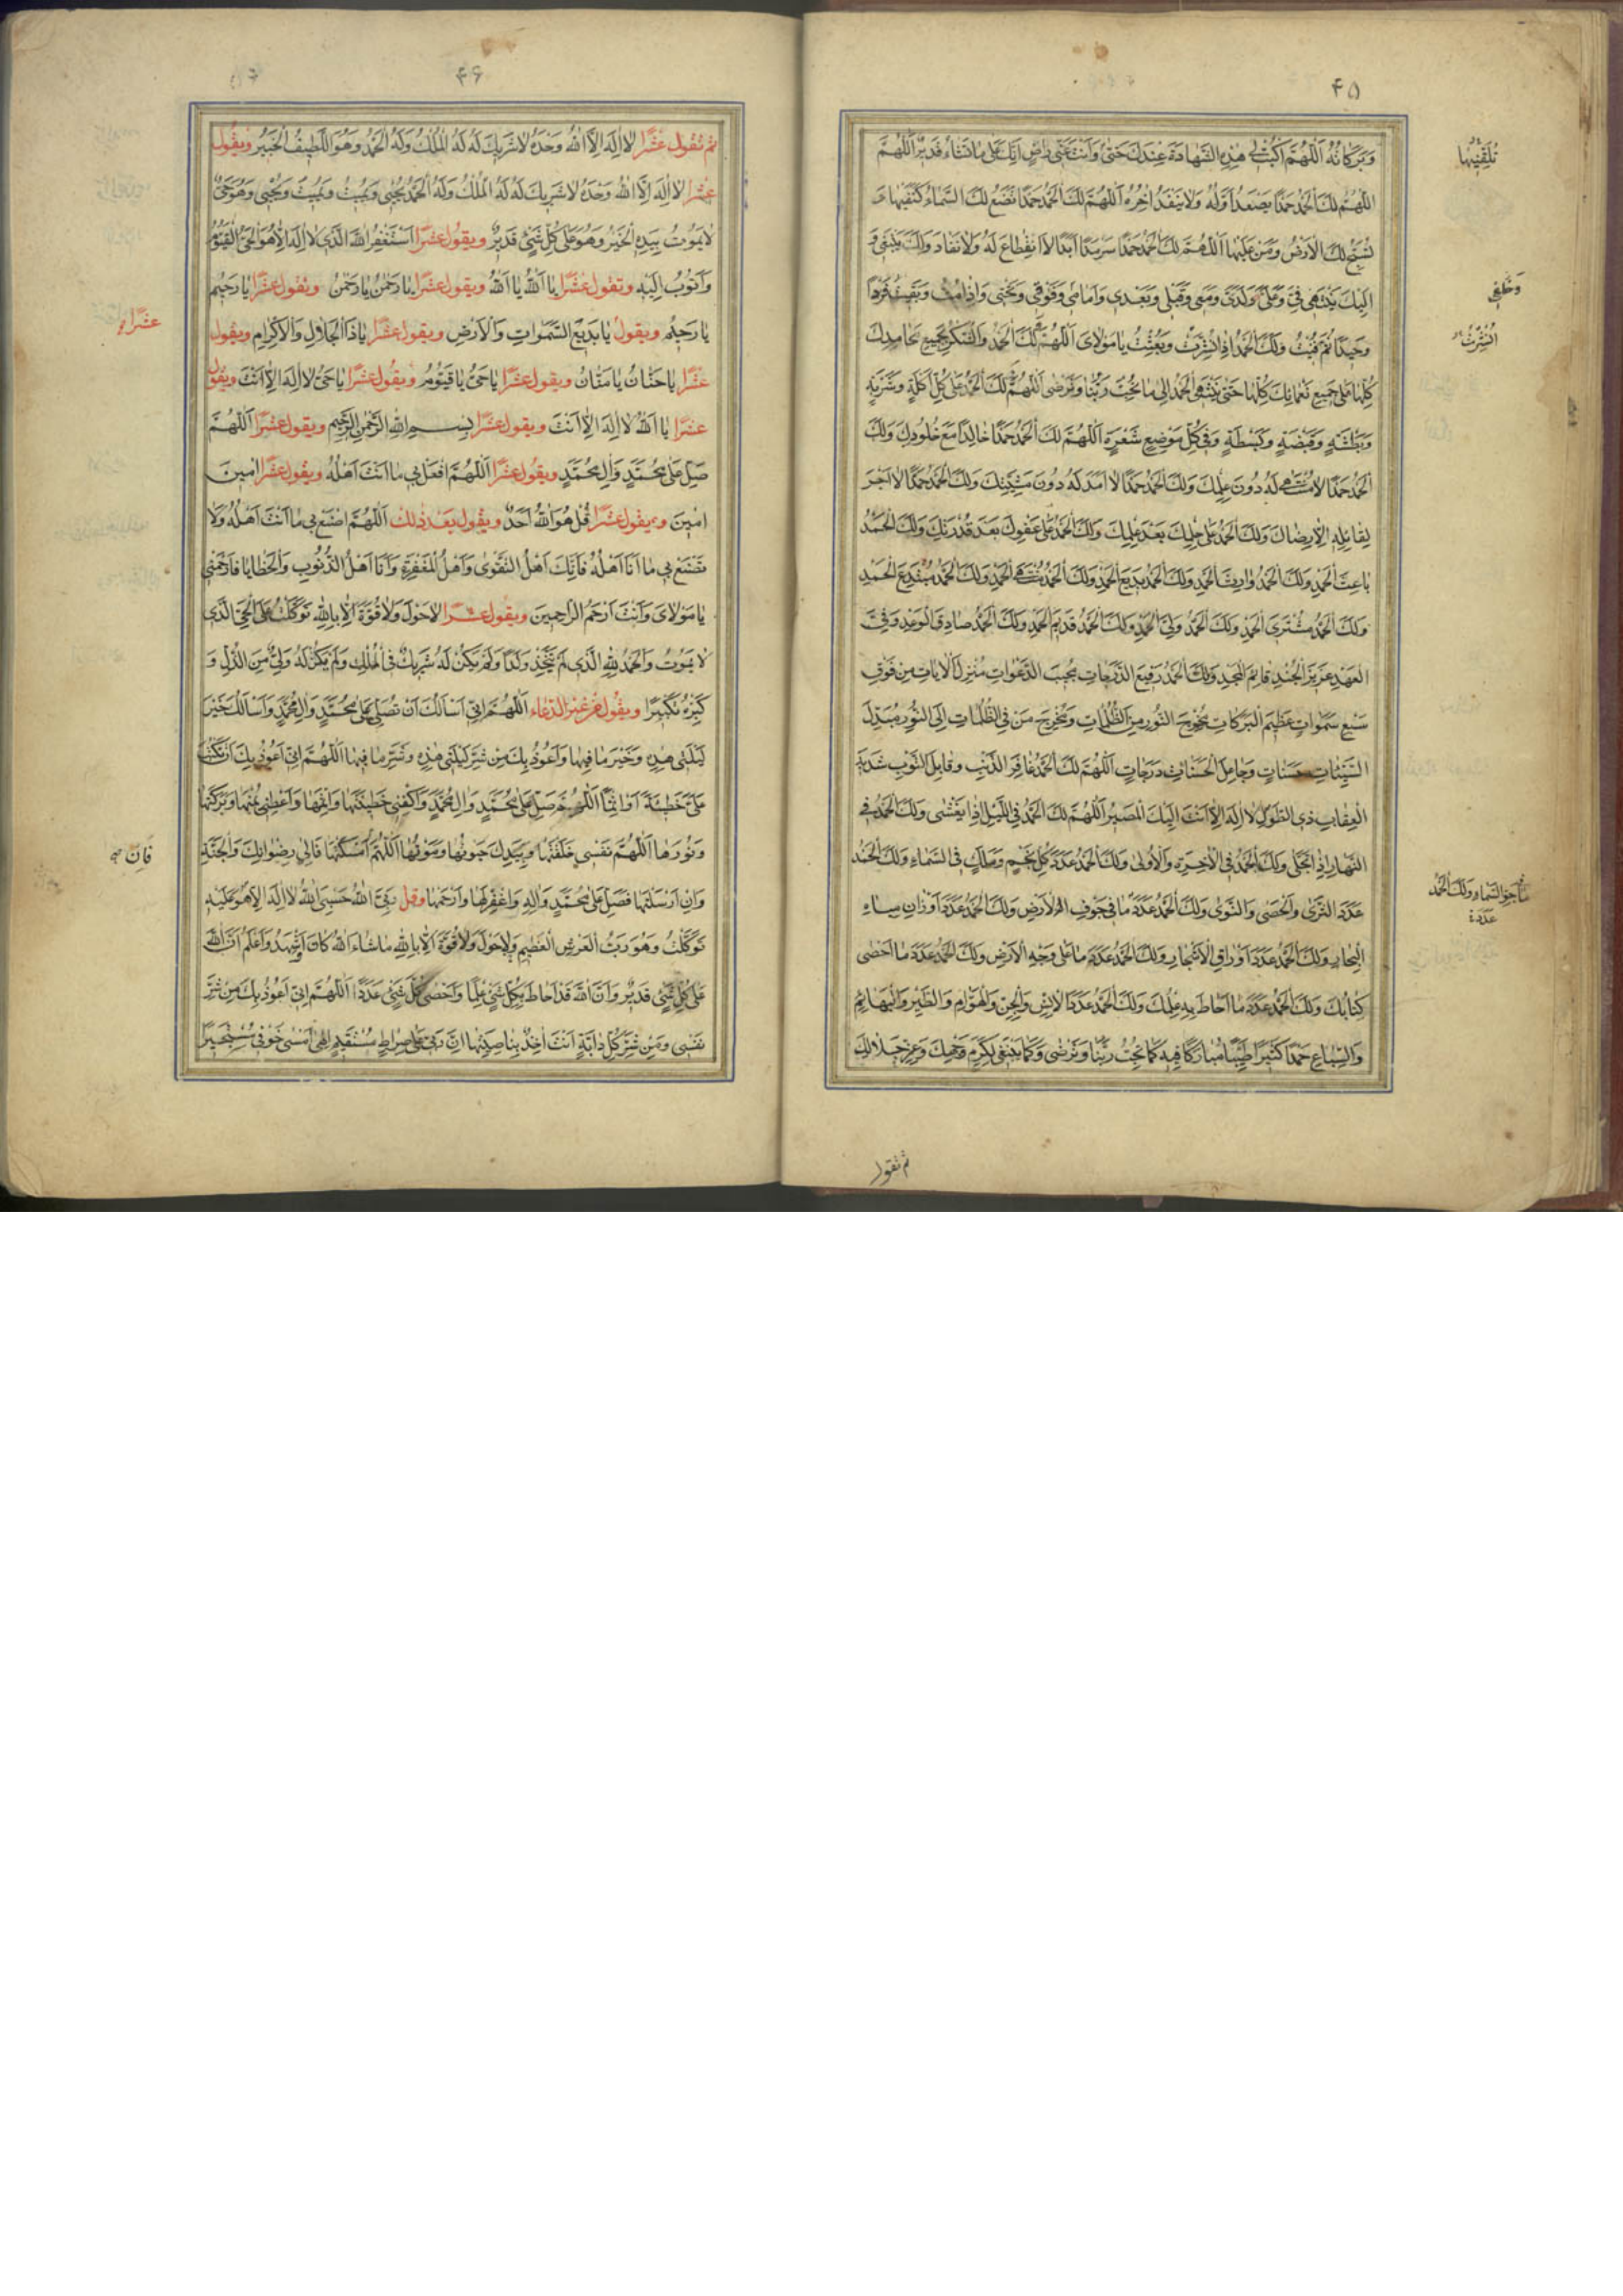 ۴۵
وَبَرَكاتُهُ اَللّٰهُمَّ اكْتُبْ لِى هٰذِهِ الشَّهادَةَ عِنْدَكَ حَتّٰى وَاَنْتَ عَنّى راضٍ اِنَّكَ عَلىٰ ما تَشاءُ قَديرٌ اَللّٰهُمَّ
تُلَقِّنَيها
اَللّٰهُمَّ لَكَ الْحَمْدُ حَمْدًا يَصْعَدُ اَوَّلُهُ وَلا يَنْفَدُ اٰخِرُهُ اَللّٰهُمَّ لَكَ الْحَمْدُ حَمْدًا تَضَعُ لَكَ السَّماءُ كَنَفَيْها وَ
تُسَبِّحُ لَكَ الْاَرْضُ وَمَنْ عَلَيْها اَللّٰهُمَّ لَكَ الْحَمْدُ حَمْدًا سَرْمَدًا اَبَدًا لاَ انْقِطاعَ لَهُ وَلا نَفادَ وَلَكَ يَنْبَغى وَ
اِلَيْكَ يَنْتَهى فِىَّ وَعَلَىَّ وَلَدَىَّ وَمَعى وَقَبْلى وَبَعْدى وَاَمامى وَفَوْقى وَتَحْتى وَاِذا مِتُّ وَبَقيتُ فَرْدًا
وَخَلْفى
وَحيدًا ثُمَّ فَنيتُ وَلَكَ الْحَمْدُ اِذا نُشِرْتُ وَبُعِثْتُ يا مَوْلاىَ اَللّٰهُمَّ لَكَ الْحَمْدُ وَالشُّكْرُ بِجَميعِ مَحامِدِكَ
كُلِّها عَلىٰ جَميعِ نَعْمائِكَ كُلِّها حَتّٰى يَنْتَهِىَ الْحَمْدُ اِلىٰ ما تُحِبُّ رَبَّنا وَتَرْضىٰ اَللّٰهُمَّ لَكَ الْحَمْدُ عَلىٰ كُلِّ اَكْلَةٍ وَشَرْبَةٍ
وَبَطْشَةٍ وَقَبْضَةٍ وَبَسْطَةٍ وَفى كُلِّ مَوْضِعِ شَعْرَةٍ اَللّٰهُمَّ لَكَ الْحَمْدُ حَمْدًا خالِدًا مَعَ خُلُودِكَ وَلَكَ
الْحَمْدُ حَمْدًا لا مُنْتَهىٰ لَهُ دُونَ عِلْمِكَ وَلَكَ الْحَمْدُ حَمْدًا لا اَمَدَ لَهُ دُونَ مَشِيَّتِكَ وَلَكَ الْحَمْدُ حَمْدًا لا اَجْرَ
لِقائِلِهِ اِلاّ رِضاكَ وَلَكَ الْحَمْدُ عَلىٰ حِلْمِكَ بَعْدَ عِلْمِكَ وَلَكَ الْحَمْدُ عَلىٰ عَفْوِكَ بَعْدَ قُدْرَتِكَ وَلَكَ الْحَمْدُ
باعِثَ الْحَمْدِ وَلَكَ الْحَمْدُ وارِثَ الْحَمْدِ وَلَكَ الْحَمْدُ بَديعَ الْحَمْدِ وَلَكَ الْحَمْدُ مُنْتَهَى الْحَمْدِ وَلَكَ الْحَمْدُ مُبْتَدِعَ الْحَمْدِ
وَلَكَ الْحَمْدُ مُشْتَرِىَ الْحَمْدِ وَلَكَ الْحَمْدُ وَلِىَّ الْحَمْدِ وَلَكَ الْحَمْدُ قَديمَ الْحَمْدِ وَلَكَ الْحَمْدُ صادِقَ الْوَعْدِ وَفِىَّ
الْعَهْدِ عَزيزَ الْجُنْدِ قائِمَ الْمَجْدِ وَلَكَ الْحَمْدُ رَفيعَ الدَّرَجاتِ مُجيبَ الدَّعَواتِ مُنْزِلَ الْاٰياتِ مِنْ فَوْقِ
سَبْعِ سَمٰواتٍ عَظيمَ الْبَرَكاتِ مُخْرِجَ النُّورِ مِنَ الظُّلُماتِ وَمُخْرِجَ مَنْ فِى الظُّلُماتِ اِلَى النُّورِ مُبَدِّلَ
السَّيِّئاتِ حَسَناتٍ وَجاعِلَ الْحَسَناتِ دَرَجاتٍ اَللّٰهُمَّ لَكَ الْحَمْدُ غافِرَ الذَّنْبِ وَقابِلَ التَّوْبِ شَديدَ
الْعِقابِ ذِى الطَّوْلِ لا اِلٰهَ اِلاّ اَنْتَ اِلَيْكَ الْمَصيرُ اَللّٰهُمَّ لَكَ الْحَمْدُ فِى اللَّيْلِ اِذا يَغْشىٰ وَلَكَ الْحَمْدُ فِى
النَّهارِ اِذا تَجَلّىٰ وَلَكَ الْحَمْدُ فِى الْاٰخِرَةِ وَالْاُولىٰ وَلَكَ الْحَمْدُ عَدَدَ كُلِّ نَجْمٍ وَمَلَكٍ فِى السَّماءِ وَلَكَ الْحَمْدُ
عَدَدَ الثَّرىٰ وَالْحَصىٰ وَالنَّوىٰ وَلَكَ الْحَمْدُ عَدَدَ ما فى جَوْفِ الْاَرْضِ وَلَكَ الْحَمْدُ عَدَدَ اَوْزانِ مِياهِ
ما فى جَوِّ السَّماءِ وَلَكَ الْحَمْدُ
عَدَدَ
الْبِحارِ وَلَكَ الْحَمْدُ عَدَدَ اَوْراقِ الْاَشْجارِ وَلَكَ الْحَمْدُ عَدَدَ ما عَلىٰ وَجْهِ الْاَرْضِ وَلَكَ الْحَمْدُ عَدَدَ ما اَحْصىٰ
كِتابُكَ وَلَكَ الْحَمْدُ عَدَدَ ما اَحاطَ بِهِ عِلْمُكَ وَلَكَ الْحَمْدُ عَدَدَ الْاِنْسِ وَالْجِنِّ وَالْهَوامِّ وَالطَّيْرِ وَالْبَهائِمِ
وَالسِّباعِ حَمْدًا كَثيرًا طَيِّبًا مُبارَكًا فيهِ كَما تُحِبُّ رَبَّنا وَتَرْضىٰ وَكَما يَنْبَغى لِكَرَمِ وَجْهِكَ وَعِزِّ جَلالِكَ
ثم تقول
۴۶
ثُمَّ تَقُولُ عَشْرًا لا اِلٰهَ اِلاَّ اللهُ وَحْدَهُ لا شَريكَ لَهُ لَهُ الْمُلْكُ وَلَهُ الْحَمْدُ وَهُوَ اللَّطيفُ الْخَبيرُ وَيَقُولُ
عَشْرًا لا اِلٰهَ اِلاَّ اللهُ وَحْدَهُ لا شَريكَ لَهُ لَهُ الْمُلْكُ وَلَهُ الْحَمْدُ يُحْيى وَيُميتُ وَيُميتُ وَيُحْيى وَهُوَ حَىٌّ
لا يَمُوتُ بِيَدِهِ الْخَيْرُ وَهُوَ عَلىٰ كُلِّ شَىْءٍ قَديرٌ وَيَقُولُ عَشْرًا اَسْتَغْفِرُ اللهَ الَّذى لا اِلٰهَ اِلاّ هُوَ الْحَىُّ الْقَيُّومُ
وَاَتُوبُ اِلَيْهِ وَتَقُولُ عَشْرًا يا اَللهُ يا اَللهُ وَيَقُولُ عَشْرًا يا رَحْمٰنُ يا رَحْمٰنُ وَيَقُولُ عَشْرًا يا رَحيمُ
يا رَحيمُ وَيَقُولُ يا بَديعَ السَّمٰواتِ وَالْاَرْضِ وَيَقُولُ عَشْرًا يا ذَا الْجَلالِ وَالْاِكْرامِ وَيَقُولُ
عَشْرًا
عَشْرًا يا حَنّانُ يا مَنّانُ وَيَقُولُ عَشْرًا يا حَىُّ يا قَيُّومُ وَيَقُولُ عَشْرًا يا حَىُّ لا اِلٰهَ اِلاّ اَنْتَ وَيَقُولُ
عَشْرًا يا اَللهُ لا اِلٰهَ اِلاّ اَنْتَ وَيَقُولُ عَشْرًا بِسْمِ اللهِ الرَّحْمٰنِ الرَّحيمِ وَيَقُولُ عَشْرًا اَللّٰهُمَّ
صَلِّ عَلىٰ مُحَمَّدٍ وَاٰلِ مُحَمَّدٍ وَيَقُولُ عَشْرًا اَللّٰهُمَّ افْعَلْ بى ما اَنْتَ اَهْلُهُ وَيَقُولُ عَشْرًا اٰمينَ
اٰمينَ وَيَقُولُ عَشْرًا قُلْ هُوَ اللهُ اَحَدٌ وَيَقُولُ بَعْدَ ذٰلِكَ اَللّٰهُمَّ اصْنَعْ بى ما اَنْتَ اَهْلُهُ وَلا
تَصْنَعْ بى ما اَنَا اَهْلُهُ فَاِنَّكَ اَهْلُ التَّقْوىٰ وَاَهْلُ الْمَغْفِرَةِ وَاَنَا اَهْلُ الذُّنُوبِ وَالْخَطايا فَارْحَمْنى
يا مَوْلاىَ وَاَنْتَ اَرْحَمُ الرّاحِمينَ وَيَقُولُ عَشْرًا لا حَوْلَ وَلا قُوَّةَ اِلاّ بِاللهِ تَوَكَّلْتُ عَلَى الْحَىِّ الَّذى
لا يَمُوتُ وَالْحَمْدُ لِلّٰهِ الَّذى لَمْ يَتَّخِذْ وَلَدًا وَلَمْ يَكُنْ لَهُ شَريكٌ فِى الْمُلْكِ وَلَمْ يَكُنْ لَهُ وَلِىٌّ مِنَ الذُّلِّ وَ
كَبِّرْهُ تَكْبيرًا وَيَقُولُ اَللّٰهُمَّ اِنّى اَسْاَلُكَ اَنْ تُصَلِّىَ عَلىٰ مُحَمَّدٍ وَاٰلِ مُحَمَّدٍ وَاَسْاَلُكَ خَيْرَ
لَيْلَتى هٰذِهِ وَخَيْرَ ما فيها وَاَعُوذُ بِكَ مِنْ شَرِّ لَيْلَتى هٰذِهِ وَشَرِّ ما فيها اَللّٰهُمَّ اِنّى اَعُوذُ بِكَ اَنْ تَكْتُبَ
عَلَىَّ خَطيئَةً اَوْ اِثْمًا اَللّٰهُمَّ صَلِّ عَلىٰ مُحَمَّدٍ وَاٰلِ مُحَمَّدٍ وَاكْفِنى خَطيئَتَها وَاِثْمَها وَاَعْطِنى يُمْنَها وَبَرَكَتَها
وَنُورَها اَللّٰهُمَّ نَفْسى خَلَقْتَها وَبِيَدِكَ حَيٰوتُها وَمَوْتُها اَللّٰهُمَّ اَمْسَكْتَها فَاِلىٰ رِضْوانِكَ وَالْجَنَّةِ
فَاِنْ
وَاِنْ اَرْسَلْتَها فَصَلِّ عَلىٰ مُحَمَّدٍ وَاٰلِهِ وَاغْفِرْ لَها وَارْحَمْها وَقُلْ رَبِّىَ اللهُ حَسْبِىَ اللهُ لا اِلٰهَ اِلاّ هُوَ عَلَيْهِ
تَوَكَّلْتُ وَهُوَ رَبُّ الْعَرْشِ الْعَظيمِ وَلا حَوْلَ وَلا قُوَّةَ اِلاّ بِاللهِ ما شاءَ اللهُ كانَ اَشْهَدُ وَاَعْلَمُ اَنَّ اللهَ
عَلىٰ كُلِّ شَىْءٍ قَديرٌ وَاَنَّ اللهَ قَدْ اَحاطَ بِكُلِّ شَىْءٍ عِلْمًا وَاَحْصىٰ كُلَّ شَىْءٍ عَدَدًا اَللّٰهُمَّ اِنّى اَعُوذُ بِكَ مِنْ شَرِّ
نَفْسى وَمِنْ شَرِّ كُلِّ دابَّةٍ اَنْتَ اٰخِذٌ بِناصِيَتِها اِنَّ رَبّى عَلىٰ صِراطٍ مُسْتَقيمٍ اِلٰهى اَمْسىٰ خَوْفى مُسْتَجيرًا